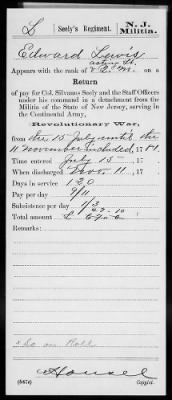 L | Seely's Regiment. | N. J. Militia.
Edward Lewis
acting Lt.
Appears with the rank of Q. M. on a
Return
of pay for Col. Silvanus Seely and the Staff Officers
under his command in a detachment from the
Militia of the State of New Jersey, serving in
the Continental Army,
Revolutionary War,
from the 15 July until the
11 November included, 1781.
Time entered July 15, 17
When discharged Nov. 11, 17
Days in service 120
Pay per day 9/11
Subsistence per day 1/3
Total amount £
Remarks:
*So on Roll
Housel
Copyist.